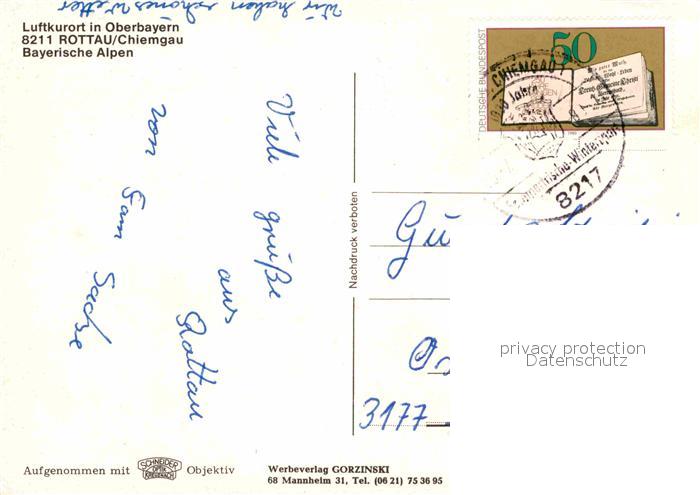 Wir haben schönes Wetter
Luftkurort in Oberbayern
8211 ROTTAU/Chiemgau
Bayerische Alpen
Viele grüße
aus
Rottau
von Fam
Sache
Nachdruck verboten
DEUTSCHE BUNDESPOST
50
CHIEMGAU
8217
Gu
3177
privacy protection
Datenschutz
Aufgenommen mit SCHNEIDER OPTIK KREUZNACH Objektiv
Werbeverlag GORZINSKI
68 Mannheim 31, Tel. (06 21) 75 36 95